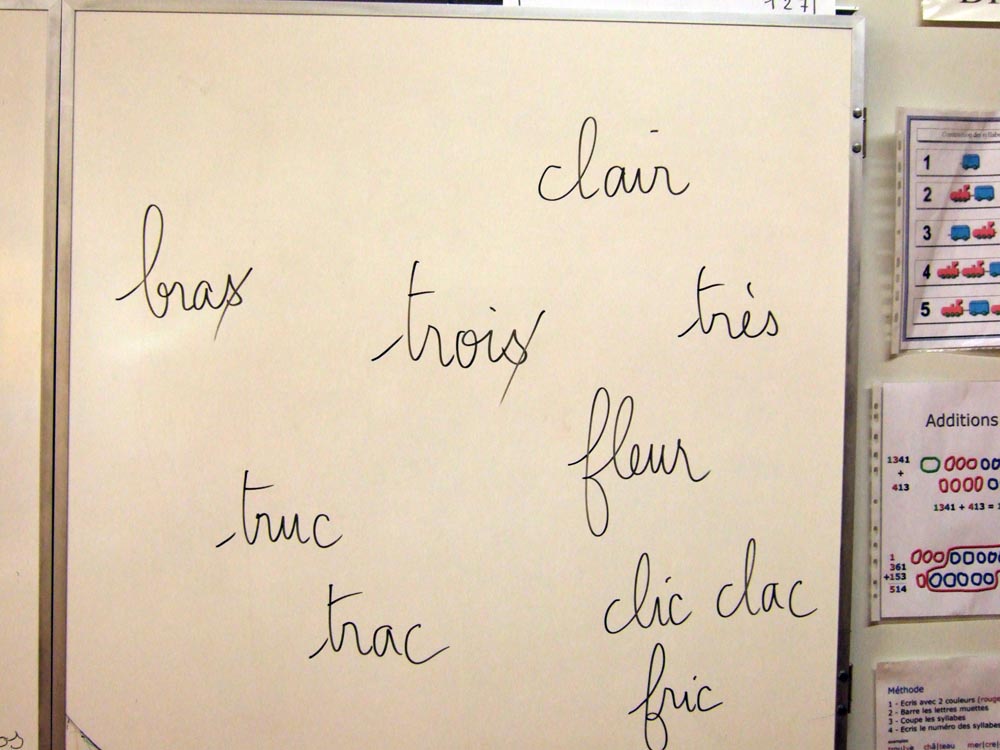 127
clair
bras
trois
très
fleur
truc
clic clac
trac
fric
1
2
3
4
5
Additions
1341
+
413
1341 + 413 = 1
1
361
+153
514
Méthode
1 - Ecris avec 2 couleurs (rouge
2 - Barre les lettres muettes
3 - Coupe les syllabes
4 - Ecris le numéro des syllabes